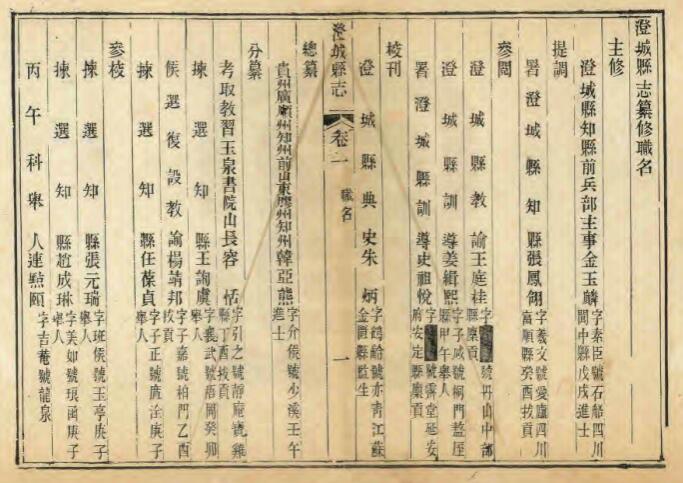 澄城縣志纂修職名
主修
澄城縣知縣前兵部主事金玉麟字素臣號石船四川閬中縣戊戌進士
提調
署澄城縣知縣張鳳翎字羲文號愛廬四川富順縣癸酉拔貢
參閱
澄城縣教諭王庭桂字號丹山中部縣廩貢
澄城縣訓導姜緝熙字子咸號桐門盩厔縣甲午舉人
署澄城縣訓導史祖悅字號霽堂延安府安定縣廩貢
校刊
澄城縣典史朱炳字鶴舲號亦青江蘇金匱縣監生
澄城縣志
卷一
職名
一
總纂
貴州廣順州知州前山東膠州知州韓亞熊字介侯號少溪壬午進士
分纂
考取教習玉泉書院山長容恬字引之號靜庵寶雞縣丁酉拔貢
揀選知縣王詢虞字襄武號蓓岡癸卯舉人
候選復設教諭楊靖邦字子嘉號柏門乙酉拔貢
揀選知縣任葆貞字子正號庚子舉人
參校
揀選知縣張元瑞字班侯號玉亭庚子舉人
揀選知縣趙成琳字美如號琅函庚子舉人
丙午科舉人連點頤字吉菴號龍泉